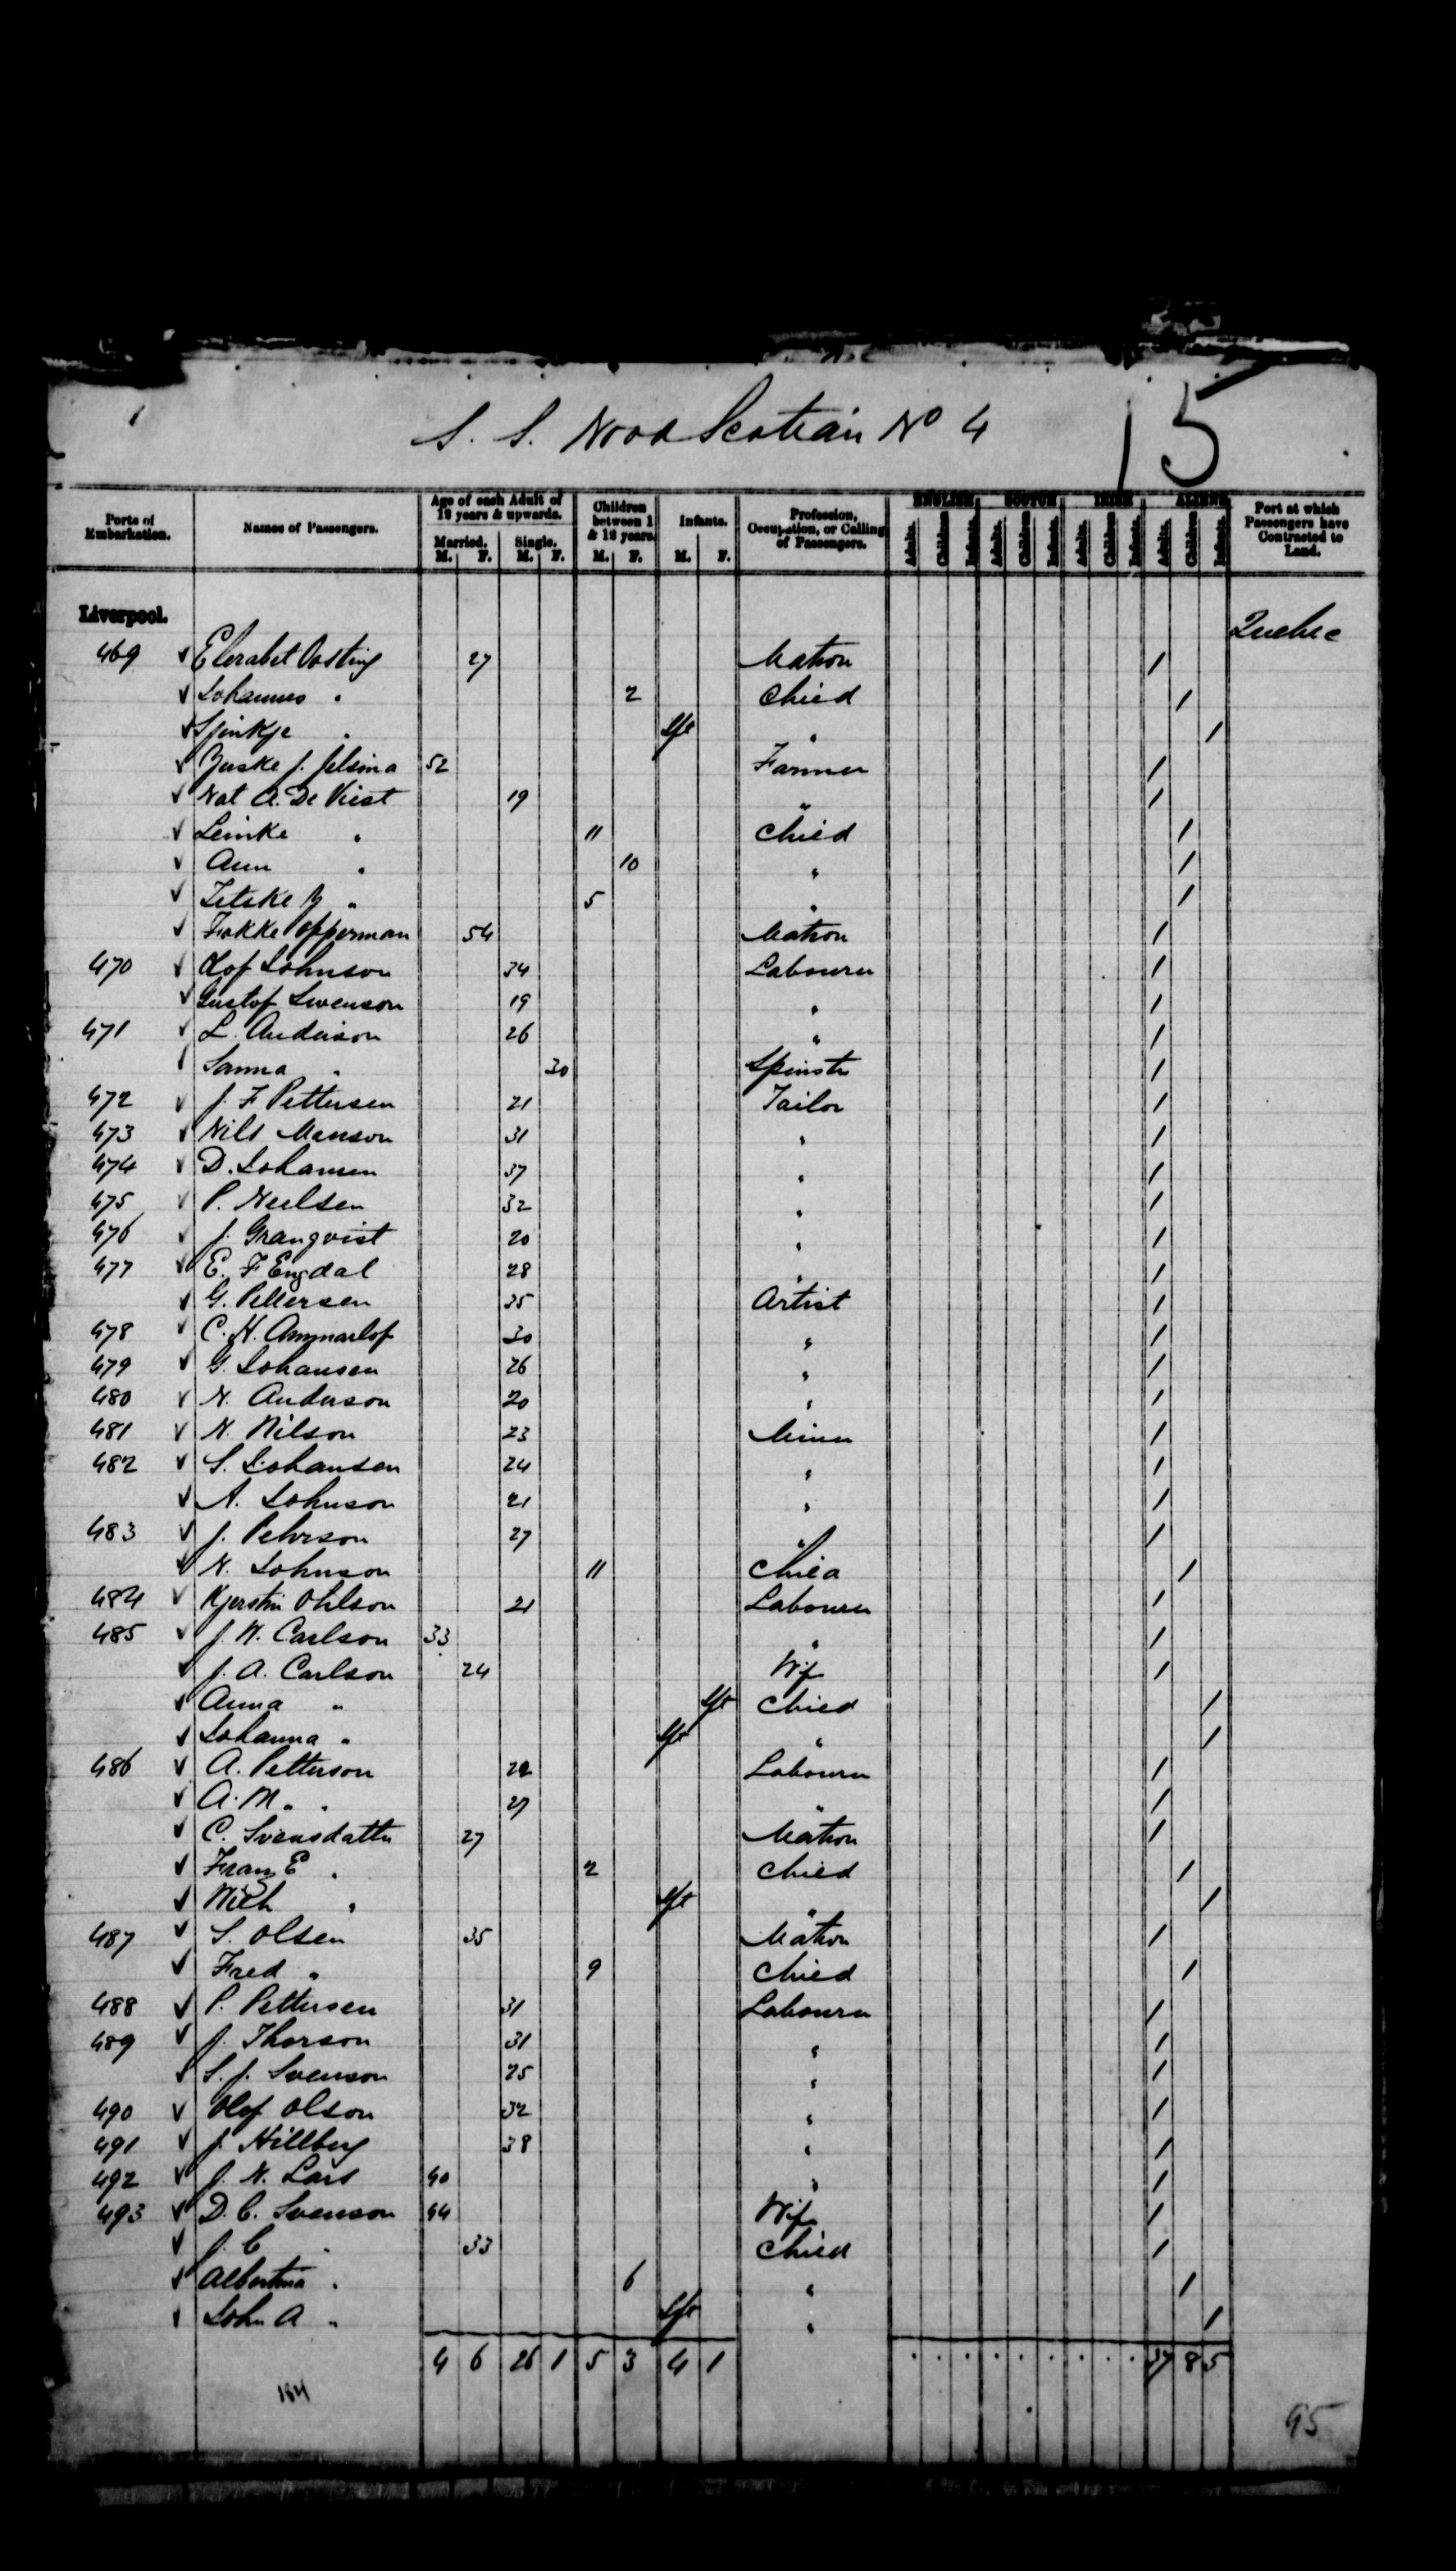 S. S. Nova Scotian No 4
15
Ports of Embarkation.
Names of Passengers.
Age of each Adult of 12 years & upwards.
Married. M. F.
Single. M. F.
Children between 1 & 12 years. M. F.
Infants. M. F.
Profession, Occupation, or Calling of Passengers.
ENGLISH. Adults. Children Infants.
SCOTCH. Adults. Children Infants.
IRISH. Adults. Children Infants.
ALIENS. Adults. Children Infants.
Port at which Passengers have Contracted to Land.
Liverpool.
Quebec
469 Elizabet Oosting 27 Matron /
Johannes " 2 Child /
Sjinkje " Ift " /
J. Jelsima 52 Farmer /
Nat A. De Vriest 19 " /
Leinke " 11 Child /
Ann " 10 " /
Zetske " 5 " /
Fokke Opperman 54 Matron /
470 Olof Johnson 34 Labourer /
Gustof Swenson 19 " /
471 L. Anderson 26 " /
Sanna " 30 Spinstr /
472 J. F Pettersen 21 Tailor /
473 Nils Manson 31 " /
474 D. Johansen 37 " /
475 P. Neilsen 32 " /
476 J. Granqvist 20 " /
477 E. F Engdal 28 " /
G. Pettersen 35 Artist /
478 C. H. Ammarlof 30 " /
479 G. Johansen 26 " /
480 N. Anderson 20 " /
481 N. Nilson 23 Miner /
482 S. Johansen 24 " /
A. Johnson 21 " /
483 J. Pehrson 27 " /
N. Johnson 11 Child /
484 Kjerstin Ohlson 21 Labourer /
485 J. W. Carlson 33 " /
J. A. Carlson 24 Wife /
Anna " Ift Child /
Johanna " Ift " /
486 A. Petterson 22 Labourer /
A. M. " 27 " /
C. Svensdatter 27 Matron /
Franz E " 2 Child /
Wilh " Ift " /
487 S. Olsen 35 Matron /
Fred " 9 Child /
488 P. Pettersen 31 Labourer /
489 J. Thorson 31 " /
S. J. Svenson 25 " /
490 Olof Olson 32 " /
491 J. Hillberg 38 " /
492 J. N. Lars 40 " /
493 D. C. Svenson 44 Wife /
J. C " 33 Child /
Albertina " 6 " /
John A " Ift " /
4 6 26 1 5 3 4 1 . . . . . . . . . 37 8 5
184
95